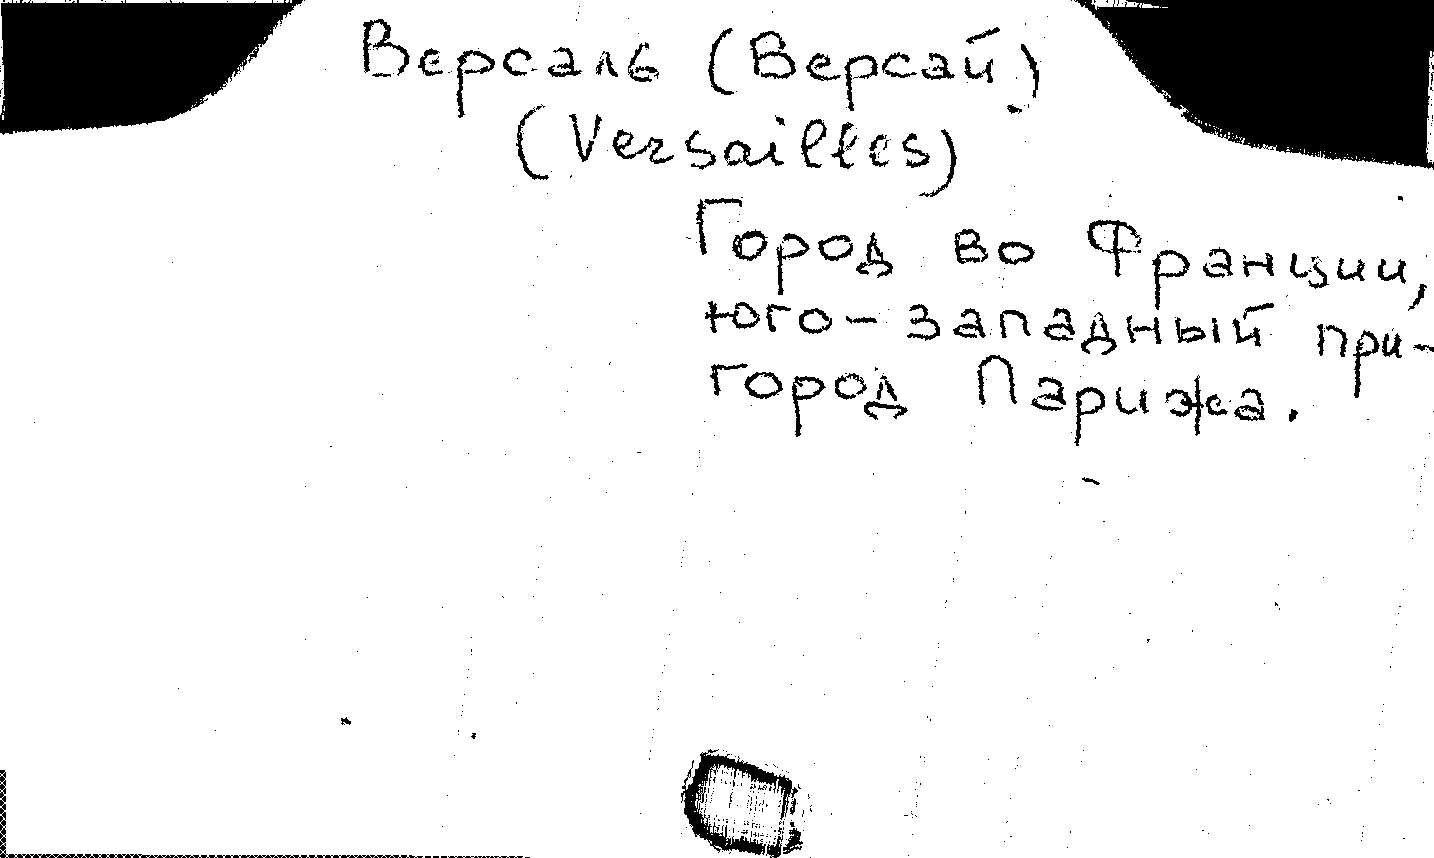 Версаль (Версай)
(Versailles)
Город во Франции,
юго-западный при-
город Парижа.